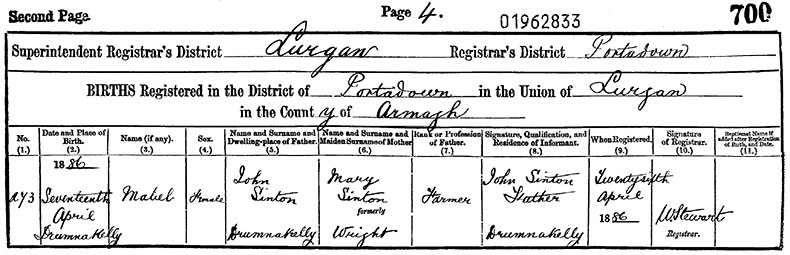 Second Page. Page 4. 01962833 700
Superintendent Registrar's District Lurgan Registrar's District Portadown
BIRTHS Registered in the District of Portadown in the Union of Lurgan
in the County of Armagh
No. (1.)
Date and Place of Birth. (2.)
Name (if any). (3.)
Sex. (4.)
Name and Surname and Dwelling-place of Father. (5.)
Name and Surname and Maiden Surname of Mother (6.)
Rank or Profession of Father. (7.)
Signature, Qualification, and Residence of Informant. (8.)
When Registered. (9.)
Signature of Registrar. (10.)
Baptismal Name if added after Registration of Birth, and Date. (11.)
1886
Seventeenth
April
Drumnakelly
Mabel
Female
John
Sinton
Drumnakelly
Mary
Sinton
formerly
Wright
Farmer
John Sinton
Father
Drumnakelly
Twentysixth
April
1886
WStewart
Registrar.